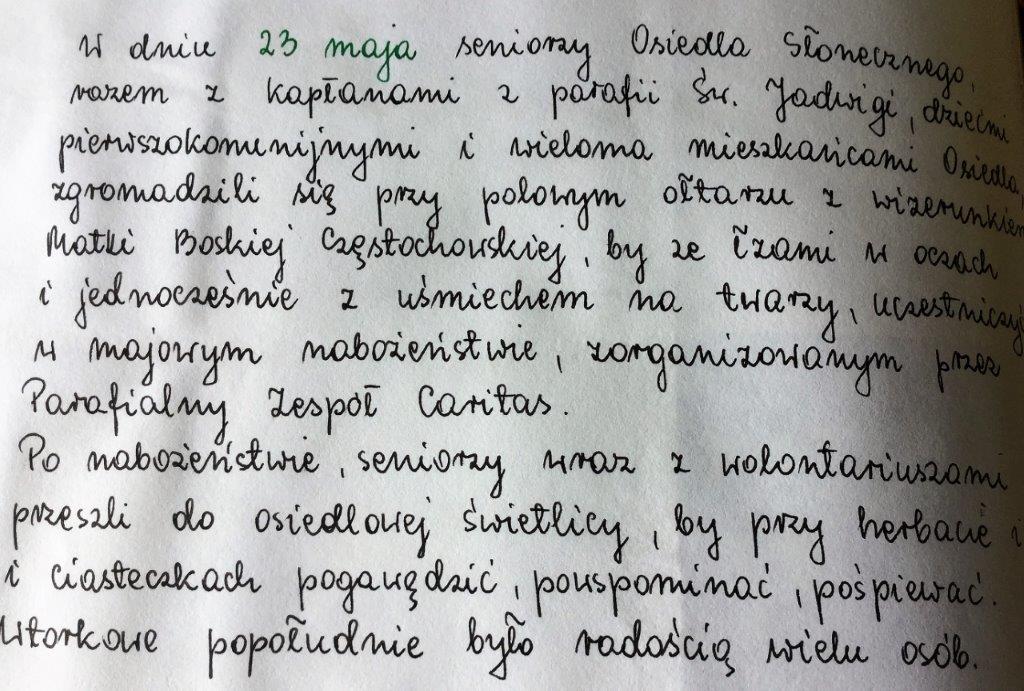 W dniu 23 maja seniorzy Osiedla Słonecznego,
razem z kapłanami z parafii Św. Jadwigi, dziećmi
pierwszokomunijnymi i wieloma mieszkańcami Osiedla
zgromadzili się przy polowym ołtarzu z wizerunkiem
Matki Boskiej Częstochowskiej, by ze łzami w oczach
i jednocześnie z uśmiechem na twarzy, uczestniczyć
w majowym nabożeństwie, zorganizowanym przez
Parafialny Zespół Caritas.
Po nabożeństwie, seniorzy wraz z wolontariuszami
przeszli do osiedlowej świetlicy, by przy herbacie i
i ciasteczkach pogawędzić, powspominać, pośpiewać.
Wtorkowe popołudnie było radością wielu osób.